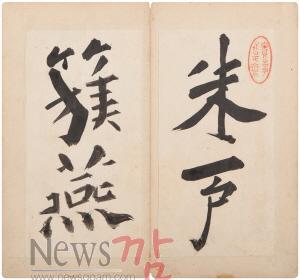 朱戶
簇燕
News깜
www.newsgnam.com